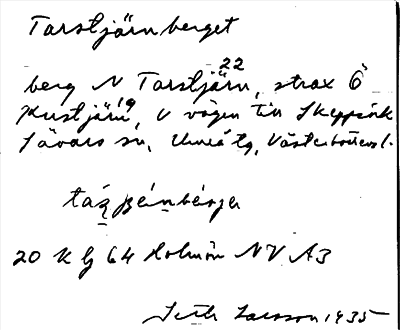 Tarstjärnberget
22
berg N Tarstjärn, strax Ö
Kustjärn 19, V vägen till Skeppsvik
Sävars sn, Umeå tg, Västerbottens l.
20 K 6j 64 Holmön NV A3
Seth Larsson 1935